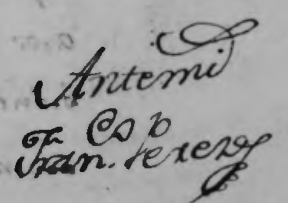 Antemi
Fran. Perez